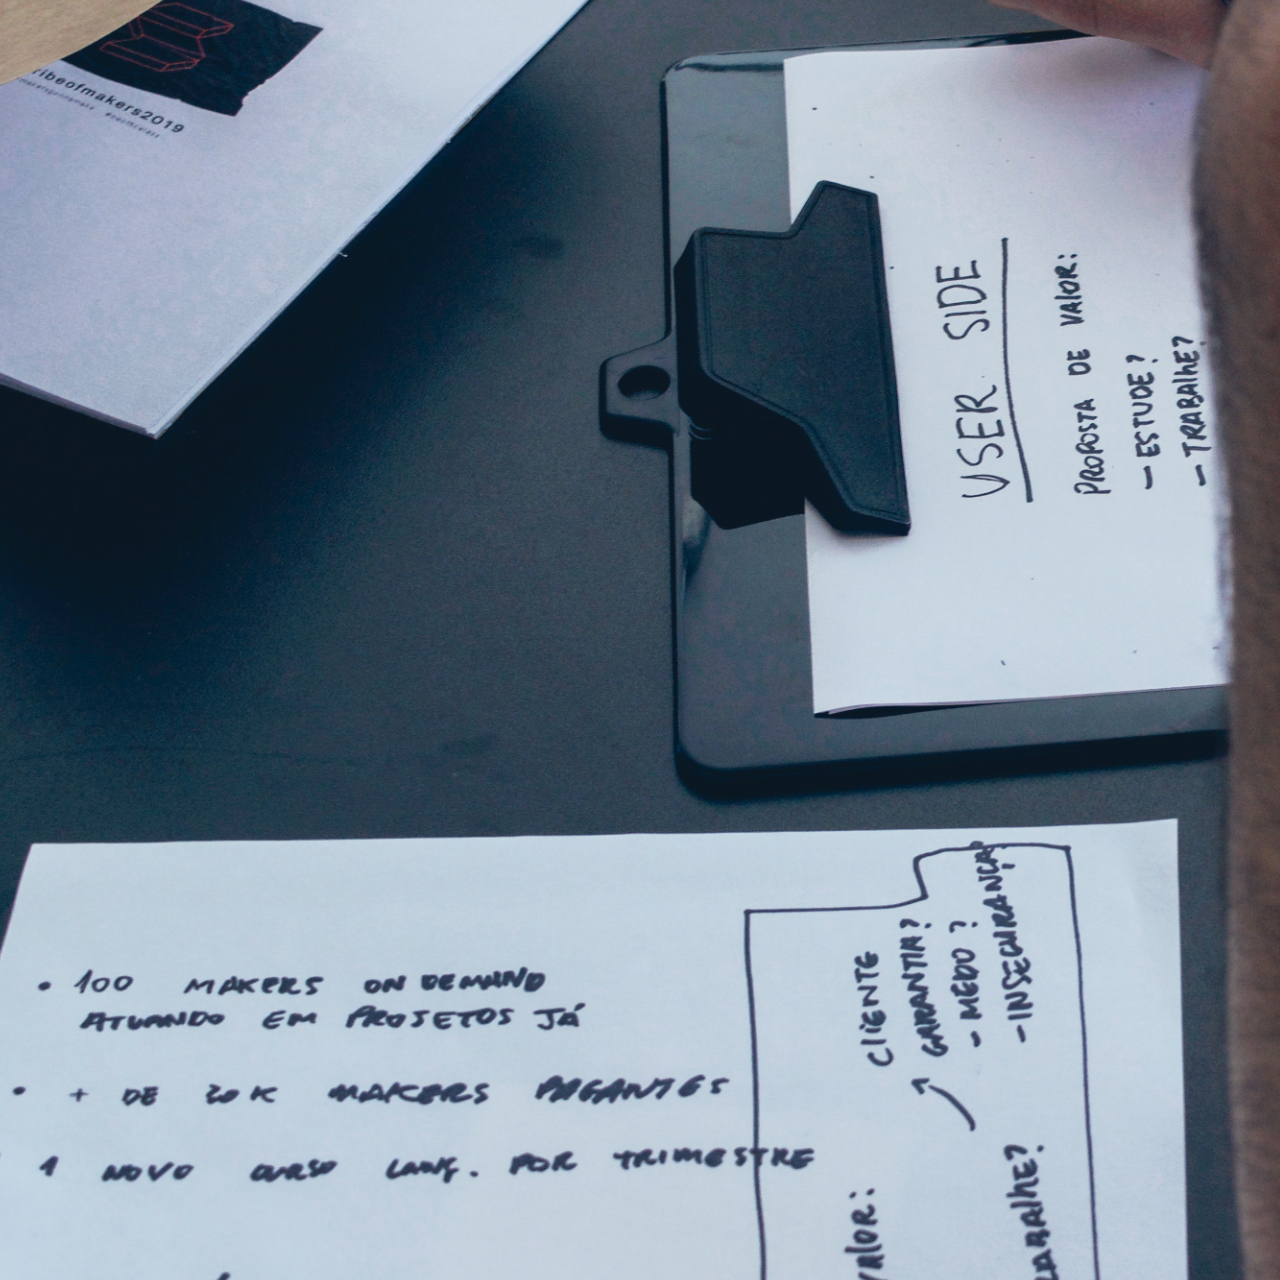 ribeofmakers2019
USER SIDE
PROPOSTA DE VALOR:
- ESTUDE?
- TRABALHE?
• 100 MAKERS ON DEMAND
ATUANDO EM PROJETOS JÁ
• + DE 20K MAKERS PAGANTES
1 NOVO CURSO LANÇ. POR TRIMESTRE
CLIENTE
GARANTIA?
- MEDO?
- INSEGURANÇA?
VALOR:
RABALHE?